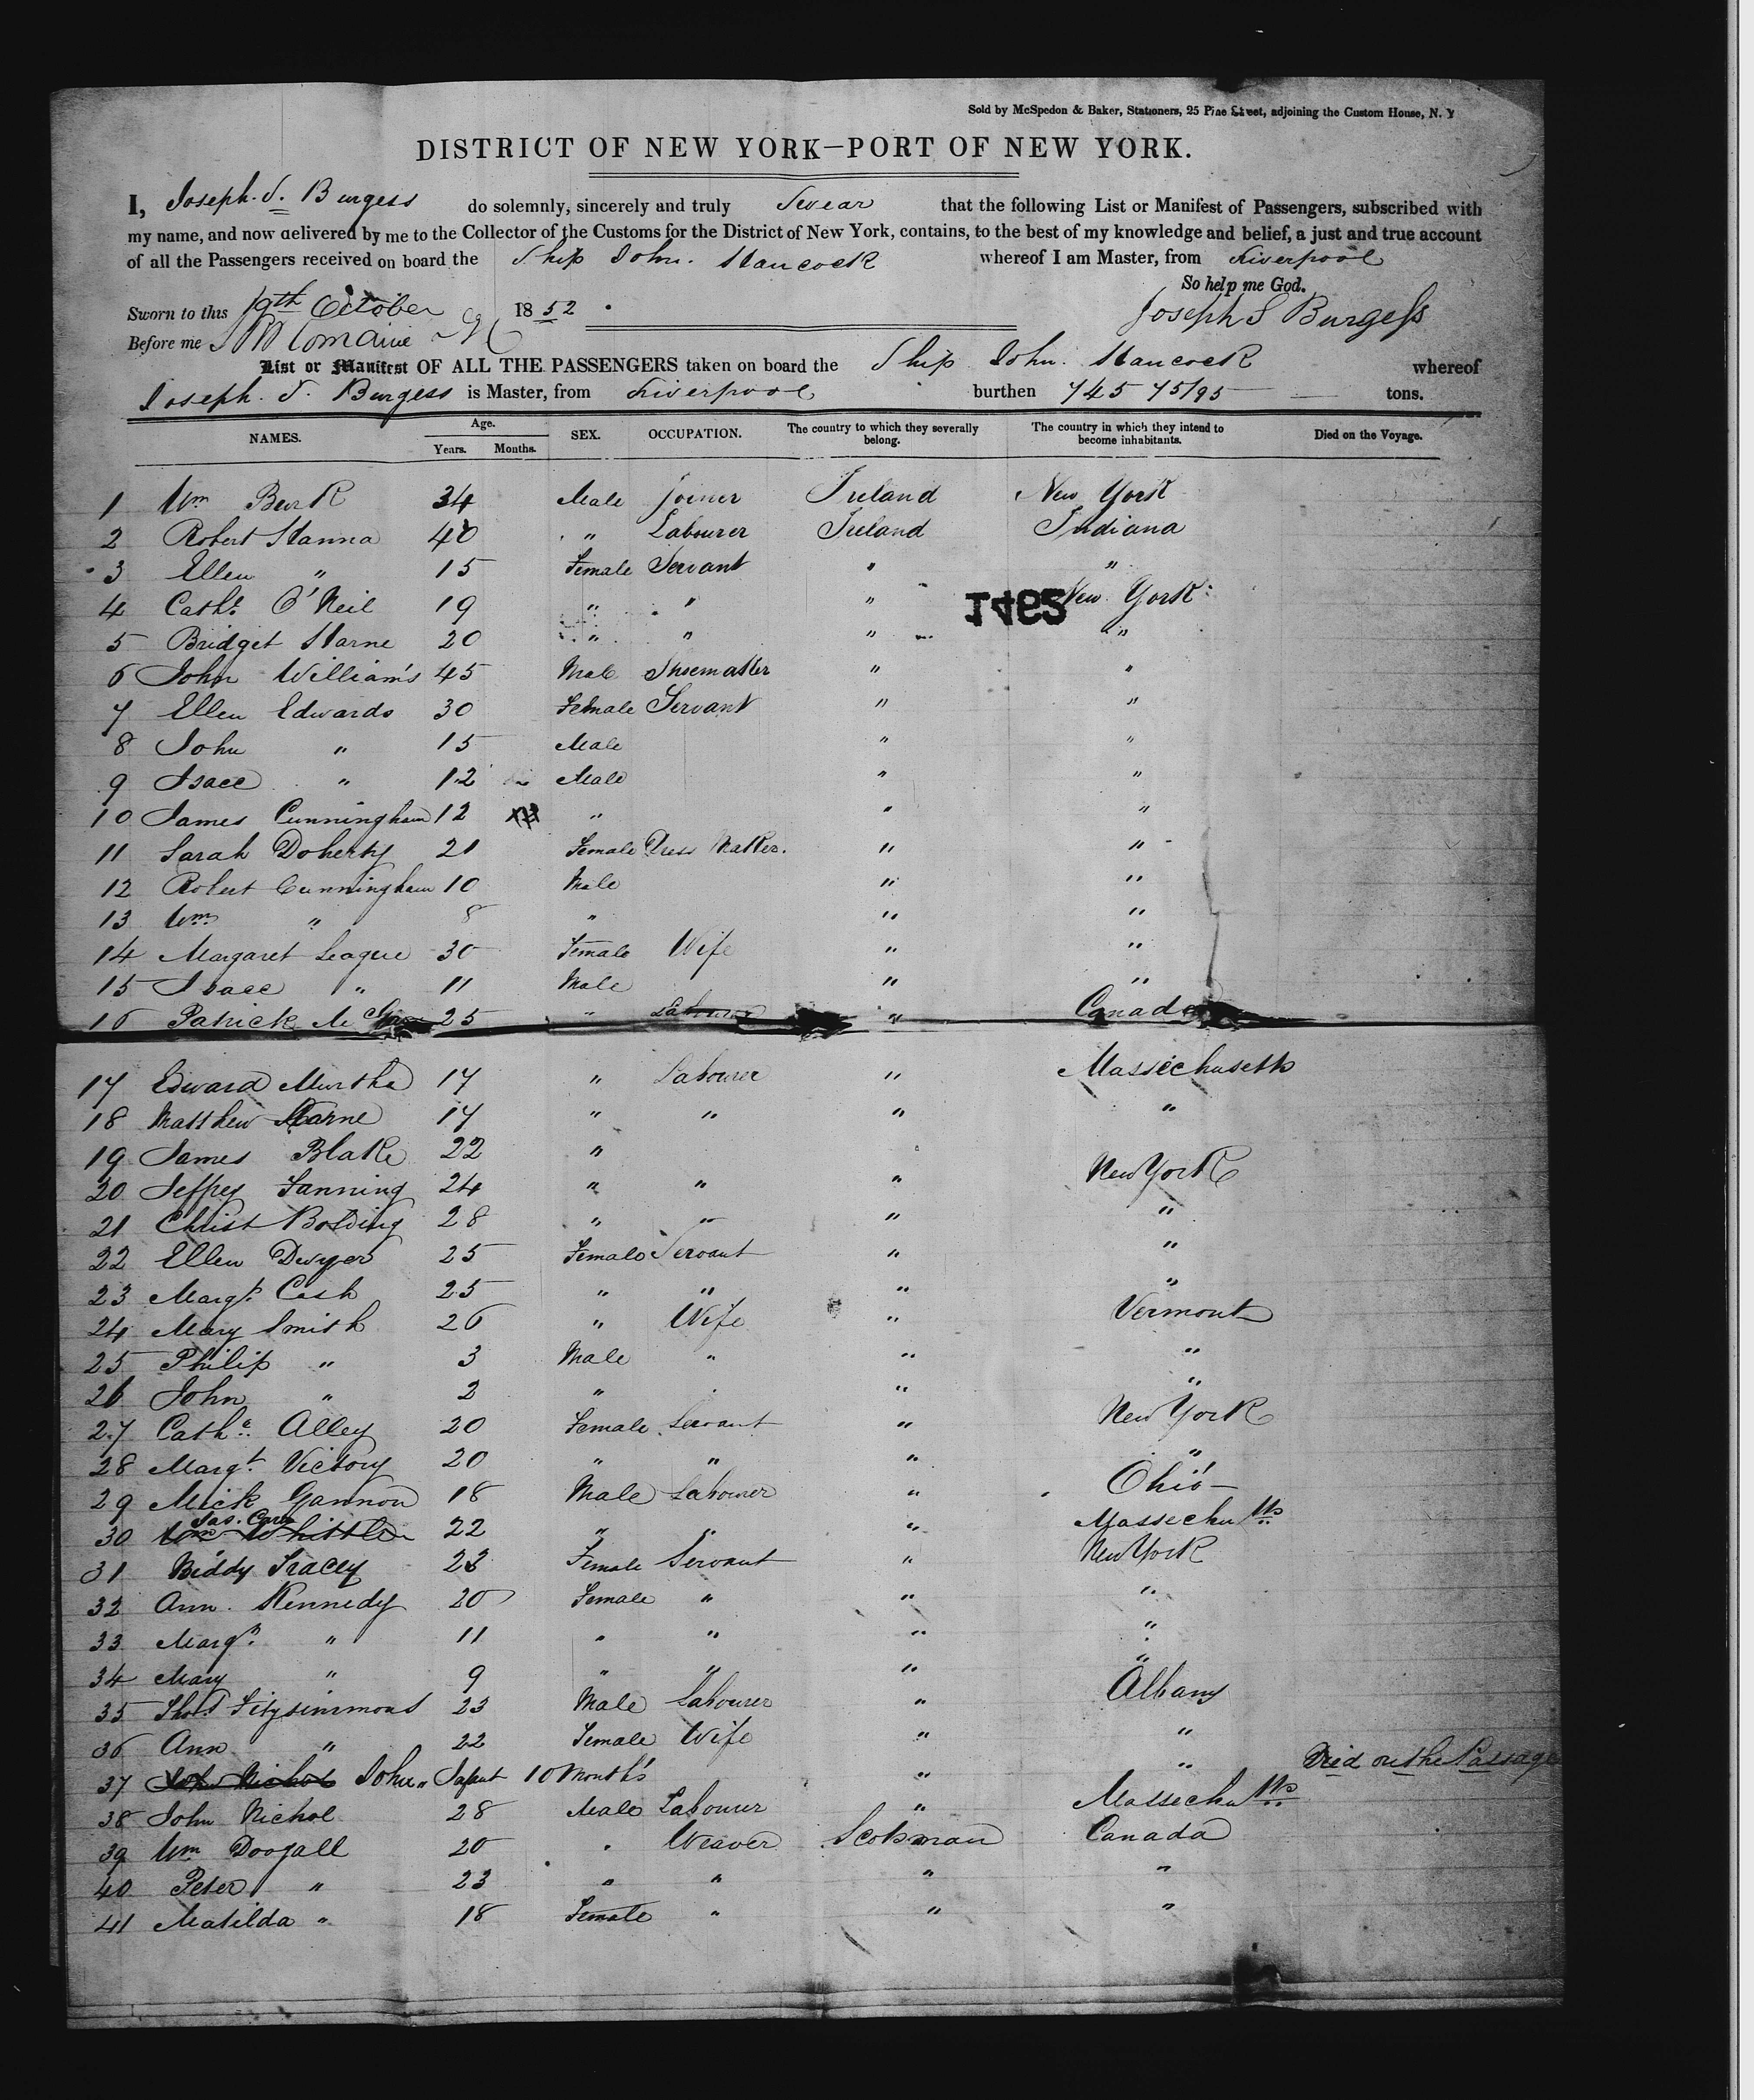 Sold by McSpedon & Baker, Stationers, 25 Pine Street, adjoining the Custom House, N. Y
DISTRICT OF NEW YORK—PORT OF NEW YORK.
I, Joseph. S. Burgess do solemnly, sincerely and truly Swear that the following List or Manifest of Passengers, subscribed with
my name, and now delivered by me to the Collector of the Customs for the District of New York, contains, to the best of my knowledge and belief, a just and true account
of all the Passengers received on board the Ship John. Hancock whereof I am Master, from Liverpool
So help me God.
Sworn to this 19th October 1852 Joseph S Burgess
Before me
List or Manifest OF ALL THE PASSENGERS taken on board the Ship John. Hancock whereof
Joseph. S. Burgess is Master, from Liverpool burthen 745 75/95 tons.
NAMES. Age. Years. Months. SEX. OCCUPATION. The country to which they severally belong. The country in which they intend to become inhabitants. Died on the Voyage.
1 Wm Burk 34 Male Joiner Ireland New York
2 Robert Hanna 40 " Labourer Ireland Indiana
3 Ellen " 15 Female Servant " "
4 Cathe O'Neil 19 " " " New York
1452
5 Bridget Harne 20 " " " "
6 John William's 45 Male Shoemaker " "
7 Ellen Edwards 30 Female Servant " "
8 John " 15 Male " "
9 Isacc " 12 Male " "
10 James Cunningham 12 " " "
11 Sarah Doherty 21 Female Dress Maker. " "
12 Robert Cunningham 10 Male " "
13 Wm " 8 " " "
14 Margaret League 30 Female Wife " "
15 Isacc " 11 Male " "
16 Patrick Mc 25 " Labourer " Canada
17 Edward Murtha 17 " Labourer " Massichusetts
18 Matthew Harne 17 " " " "
19 James Blake 22 "
20 Jeffrey Fanning 24 " " " New York
21 Christ Bolding 28 " " " "
22 Ellen Dwyer 25 Female Servant " "
23 Margt. Cash 25 " " " "
24 Mary Smith 26 " Wife " Vermont
25 Philip " 3 Male " " "
26 John " 2 " " "
27 Cathe. Alley 20 Female Servant " New York
28 Margt. Victory 20 " " " "
29 Mick Gannon 18 Male Labourer " Ohio
30 Jas. Wm Whittle 22 " " " Massechutts
31 Biddy Tracey 22 Female Servant " New York
32 Ann. Kennedy 20 Female " " "
33 Margt. " 11 " " " "
34 Mary " 9 " " " "
35 Thos Fitzsimmons 23 Male Labourer " Albany
36 Ann " 22 Female Wife " "
37 John Nichol John " Infant 10 Month's " " Died on the Passage
38 John Nichol 28 Male Labourer " Massechutts
39 Wm Doogall 20 " Weaver Scotsman Canada
40 Peter " 23 " " " "
41 Matilda " 18 Female " " "